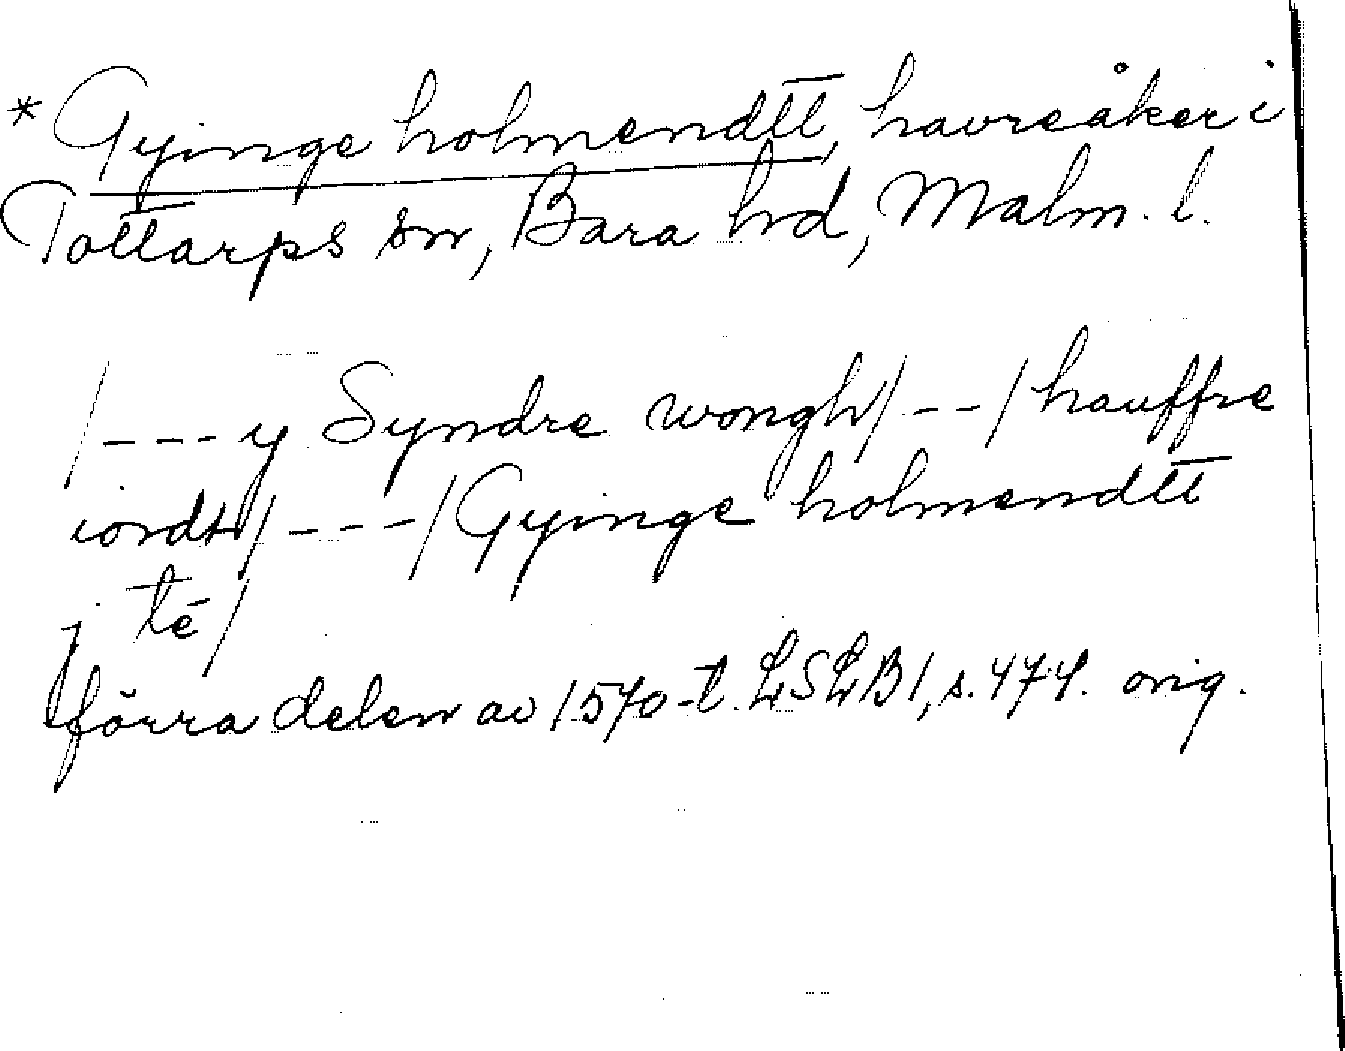 * Gyinge holmendtt, havreåker i
Tottarps sn, Bara hd, Malm. l.
/---y Syndre wongh/--/hauffre
iordt/---/Gyinge holmendtt
j té/
förra delen av 1570-t. LSLB1, s. 474. orig.